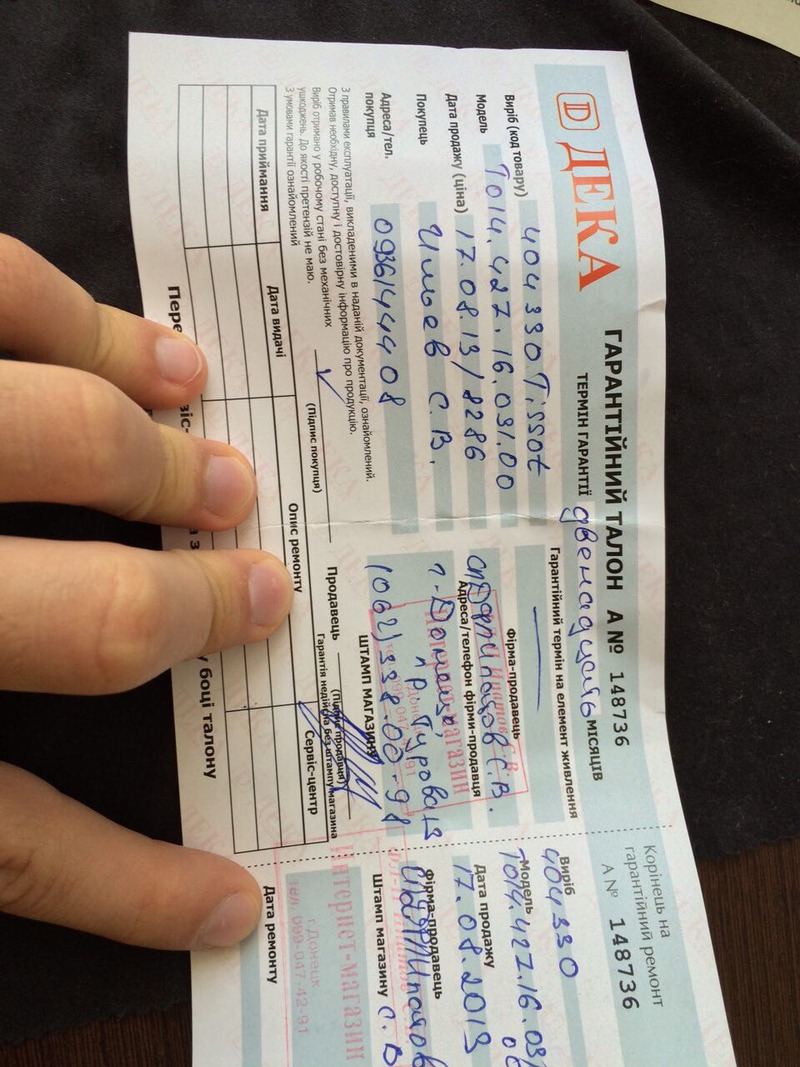 ДЕКА
ГАРАНТІЙНИЙ ТАЛОН А № 148736
ТЕРМІН ГАРАНТІЇ двенадцать МІСЯЦІВ
Виріб (код товару) 404330 Tissot
Модель T014.427.16.031.00
Дата продажу (ціна) 17.08.13/8286
Покупець
С.В.
Адреса/тел.
покупця 0936144408
З правилами експлуатації, викладеними в наданій документації, ознайомлений.
Отримав необхідну, доступну і достовірну інформацію про продукцію.
Виріб отримано у робочому стані без механічних
ушкоджень. До якості претензій не маю.
З умовами гарантії ознайомлений
(Підпис покупця)
Гарантійний термін на елемент живлення
Фірма-продавець
С.В.
Адреса/телефон фірми-продавця
г. Донецк,
(062) 338-00-98
ШТАМП МАГАЗИНУ
Продавець
(Підпис продавця)
Гарантія недійсна без штампу магазина
Дата приймання
Дата видачі
Опис ремонту
Сервіс-центр
боці талону
Корінець на
гарантійний ремонт
А № 148736
Виріб
404330
Модель
T014.427.16.031
Дата продажу
17.08.2013
Фірма-продавець
Штамп магазину
Интернет-магазин
г.Донецк
тел. 099-047-42-91
Дата ремонту